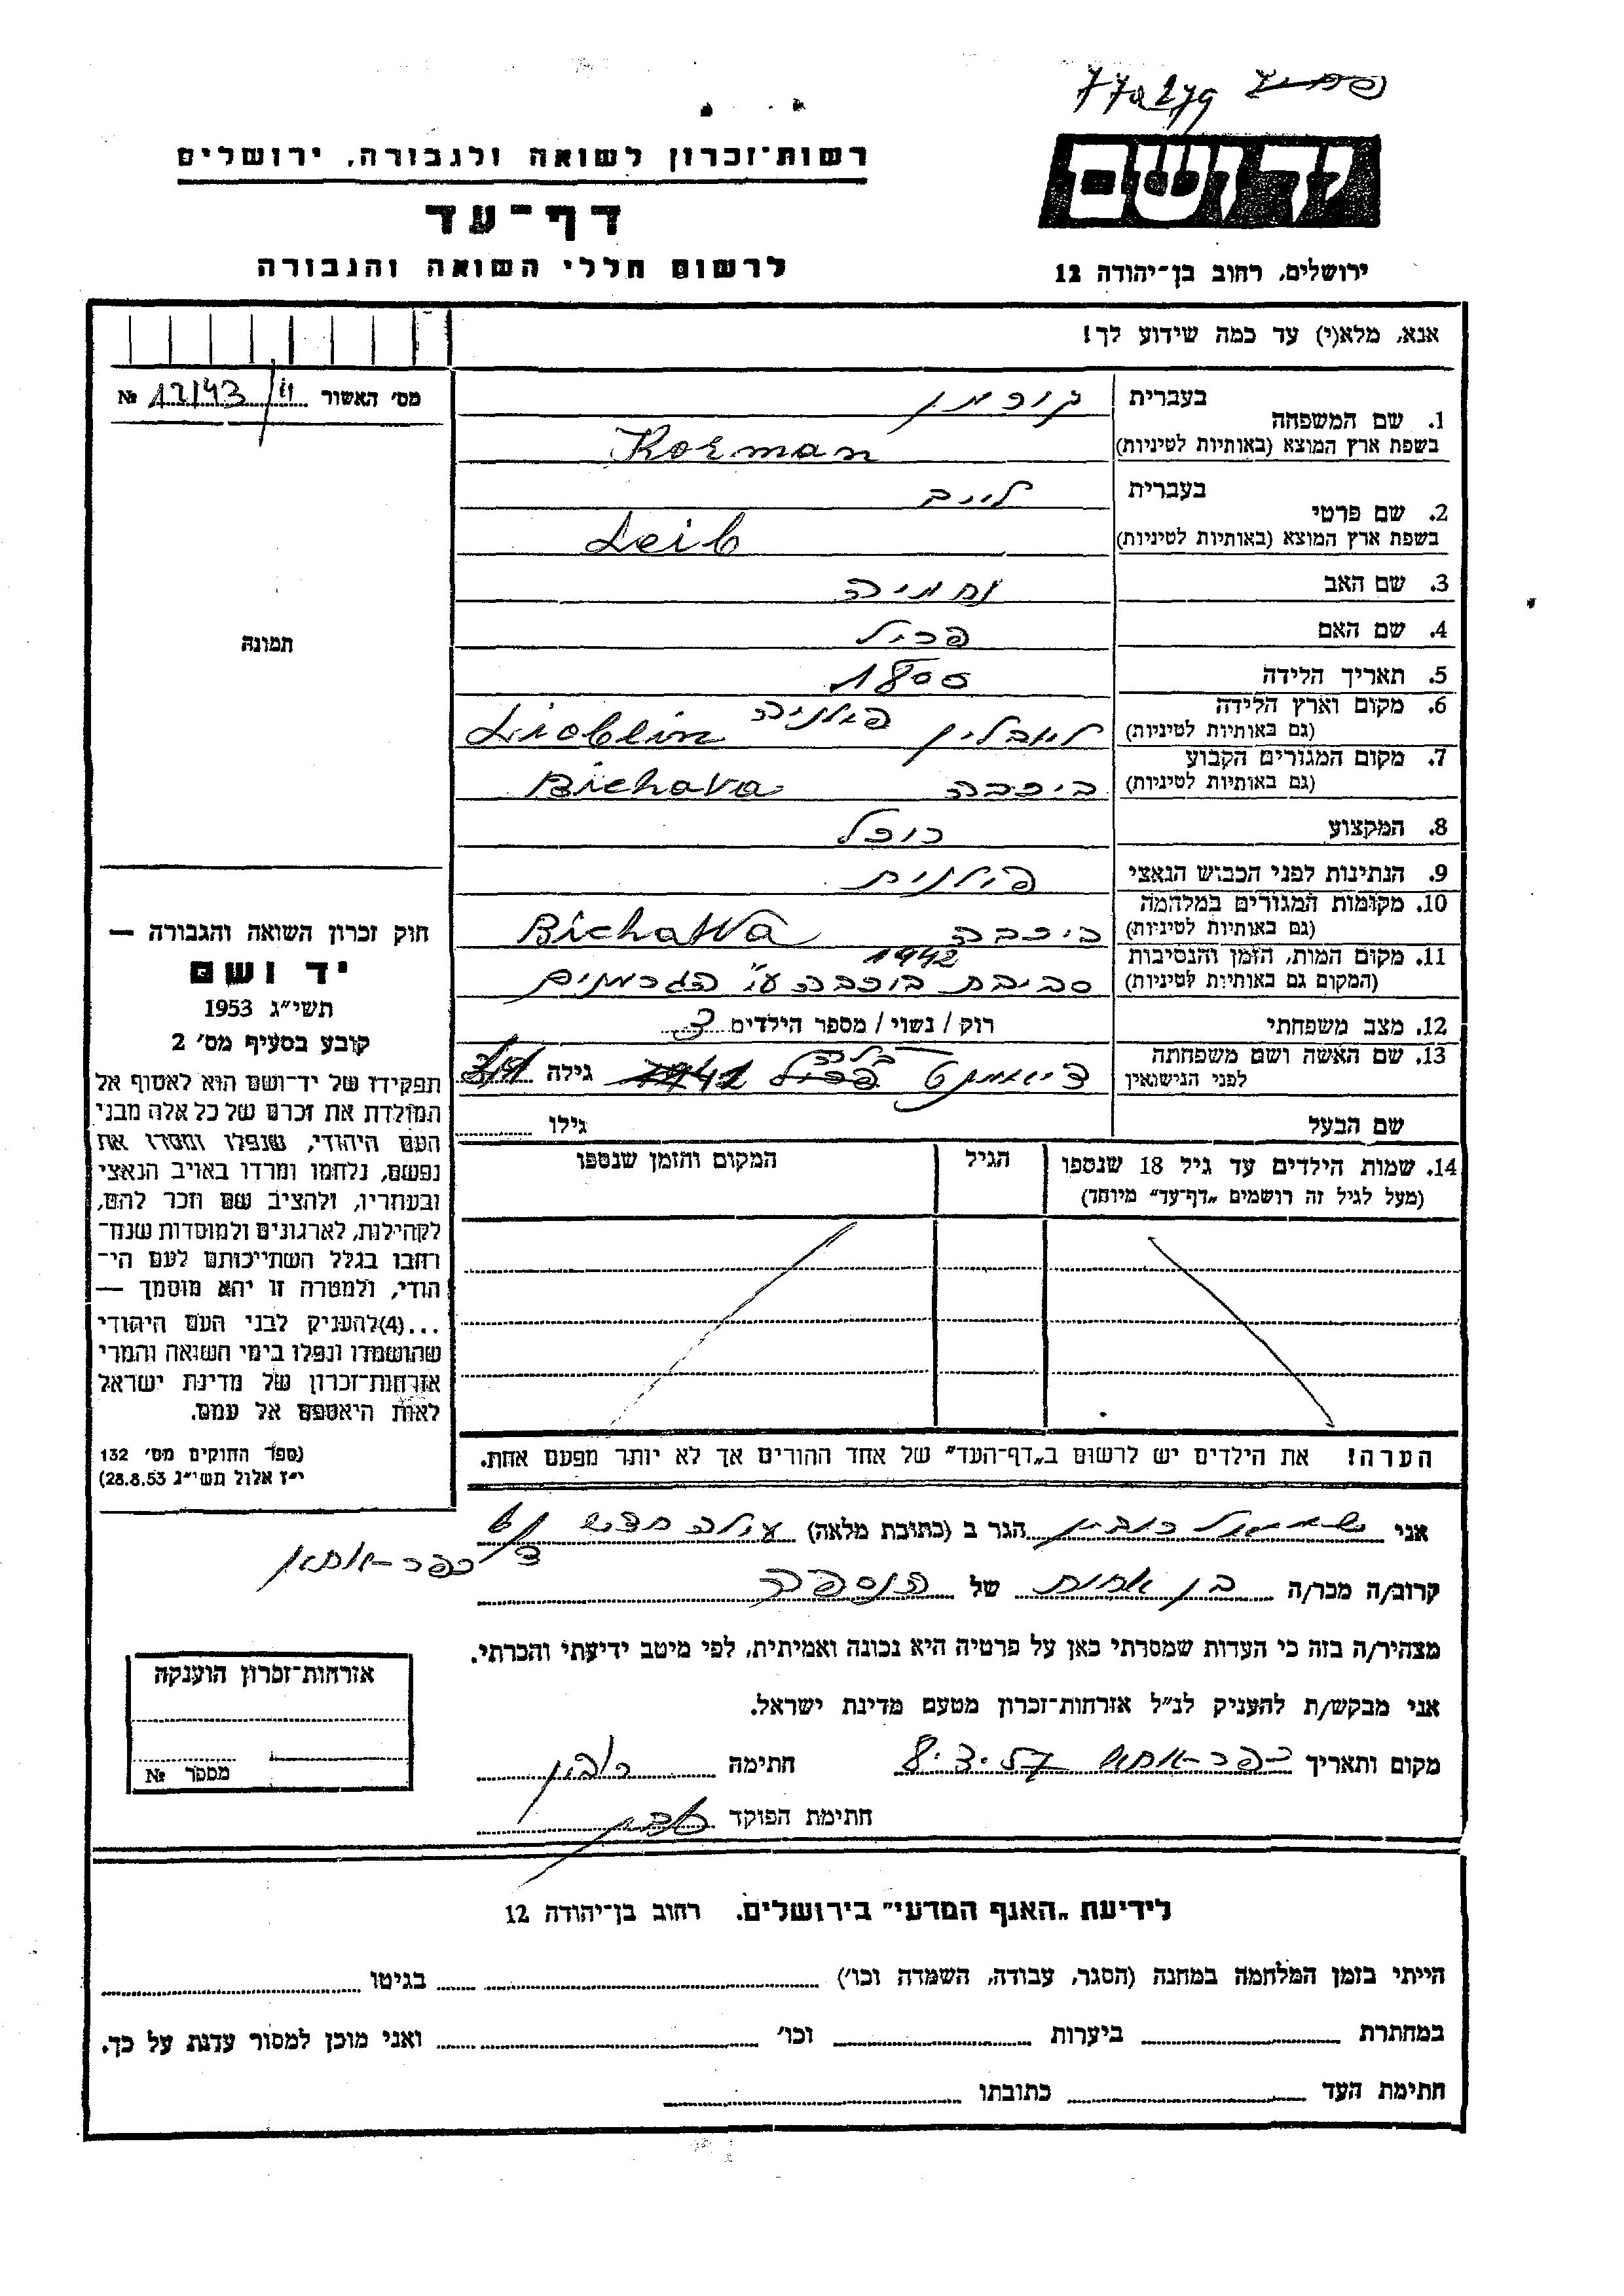 רשות־זכרון לשואה ולגבורה, ירושלים
יד ושם
דף־עד
לרשום חללי השואה והגבורה
ירושלים, רחוב בן־יהודה 12
אנא, מלא(י) עד כמה שידוע לך!
מס' האשור № 12/43
1. שם המשפחה בעברית קורמן
בשפת ארץ המוצא (באותיות לטיניות) Korman
2. שם פרטי בעברית לייב
בשפת ארץ המוצא (באותיות לטיניות) Leib
3. שם האב נחמיה
4. שם האם
5. תאריך הלידה 1800
6. מקום וארץ הלידה (גם באותיות לטיניות) לובלין פולניה Lioblin
7. מקום המגורים הקבוע (גם באותיות לטיניות) ביכבה Bichava
8. המקצוע רוכל
9. הנתינות לפני הכבוש הנאצי פולנית
10. מקומות המגורים במלחמה (גם באותיות לטיניות) ביכבה Bichawa
11. מקום המות, הזמן והנסיבות (המקום גם באותיות לטיניות) 1942
סביבת ביכבה ע"י הגרמנים
12. מצב משפחתי רוק / נשוי / מספר הילדים 3
13. שם האשה ושם משפחתה לפני הנישואין גילה
שם הבעל גילו
14. שמות הילדים עד גיל 18 שנספו (מעל לגיל זה רושמים „דף־עד" מיוחד)
הגיל
המקום והזמן שנספו
הערה! את הילדים יש לרשום ב„דף־העד" של אחד ההורים אך לא יותר מפעם אחת.
תמונה
חוק זכרון השואה והגבורה —
יד ושם
תשי"ג 1953
קובע בסעיף מס' 2
תפקידו של יד־ושם הוא לאסוף אל
המולדת את זכרם של כל אלה מבני
העם היהודי, שנפלו ומסרו את
נפשם, נלחמו ומרדו באויב הנאצי
ובעוזריו, ולהציב שם וזכר להם,
לקהילות, לארגונים ולמוסדות שנח־
רבו בגלל השתייכותם לעם הי־
הודי, ולמטרה זו יהא מוסמך —
...(4)להעניק לבני העם היהודי
שהושמדו ונפלו בימי השואה והמרי
אזרחות־זכרון של מדינת ישראל
לאות היאספם אל עמם.
(ספר החוקים מס' 132
י"ז אלול תשי"ג 28.8.53)
אני שמואל רובין הגר ב (כתובת מלאה) עולה חדש
כפר־אתא
קרוב/ה מכר/ה בן אחות של הנספה
מצהיר/ה בזה כי העדות שמסרתי כאן על פרטיה היא נכונה ואמיתית, לפי מיטב ידיעתי והכרתי.
אני מבקש/ת להעניק לנ"ל אזרחות־זכרון מטעם מדינת ישראל.
מקום ותאריך כפר־אתא 8.3.57 חתימה רובין
חתימת הפוקד
אזרחות־זכרון הוענקה
מספר №
לידיעת „האגף המדעי" בירושלים. רחוב בן־יהודה 12
הייתי בזמן המלחמה במחנה (הסגר, עבודה, השמדה וכו') בגיטו
במחתרת ביערות וכו' ואני מוכן למסור עדות על כך.
חתימת העד כתובתו